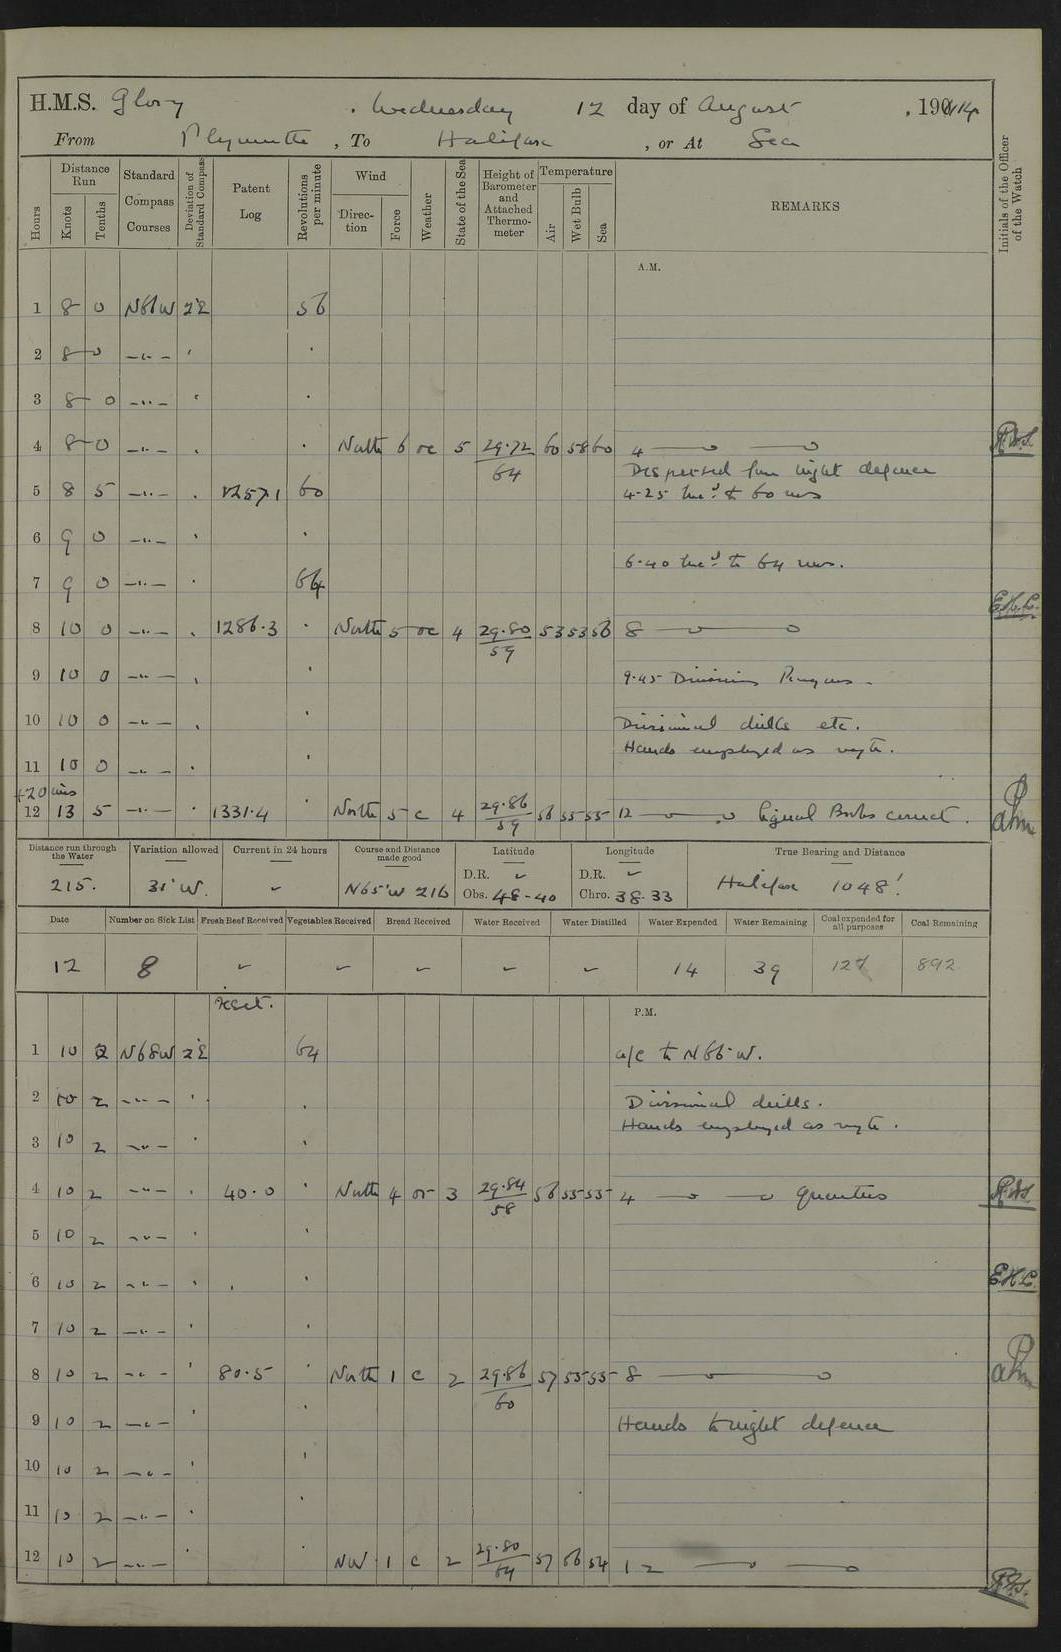 H.M.S. Glory . Wednesday 12 day of August , 1914
From Plymouth , To Halifax , or At Sea
Hours
Distance Run
Knots
Tenths
Standard Compass Courses
Deviation of Standard Compass
Patent Log
Revolutions per minute
Wind
Direction
Force
Weather
State of the Sea
Height of Barometer and Attached Thermometer
Temperature
Air
Wet Bulb
Sea
REMARKS
Initials of the Officer of the Watch
A.M.
1 8 0 56
2 8 0 —"—
3 8 0 —"—
4 8 0 —"— North 6 oc 5 29.72 64 60 58 60 4
Dispersed from night defence
5 8 5 —"— 1257.1 60 4.25 inc.d to 60 revs
6 9 0 —"—
6.40 inc.d to 64 revs.
7 9 0 —"— 64
8 10 0 —"— 1286.3 North 5 oc 4 29.80 59 53 53 56 8
9 10 0 —"— 9.45 Divisions Prayers
10 10 0 —"— Divisional drills etc.
Hands employed as reqte.
11 10 0 —"—
+20 mins
12 13 5 —"— 1331.4 North 5 c 4 29.86 59 56 55 55 12 Signal Books correct.
Distance run through the Water
Variation allowed
Current in 24 hours
Course and Distance made good
Latitude
Longitude
True Bearing and Distance
215. 31° W. N65°W 216 D.R. Obs. 48-40 D.R. Chro. 38.33 Halifax 1048'
Date
Number on Sick List
Fresh Beef Received
Vegetables Received
Bread Received
Water Received
Water Distilled
Water Expended
Water Remaining
Coal expended for all purposes
Coal Remaining
12 8 14 39 127 892
P.M.
1 10 2 N68W 2°E 64 a/c to N66°W.
2 10 2 —"— Divisional drills.
Hands employed as reqte.
3 10 2 —"—
4 10 2 —"— 40.0 North 4 3 29.84 58 56 55 55 4 Quarters
5 10 2 —"—
6 10 2 —"—
7 10 2 —"—
8 10 2 —"— 80.5 North 1 c 2 29.86 60 57 55 55 8
9 10 2 —"— Hands to night defence
10 10 2 —"—
11 10 2 —"—
12 10 2 —"— NW 1 c 2 29.80 64 57 56 54 12